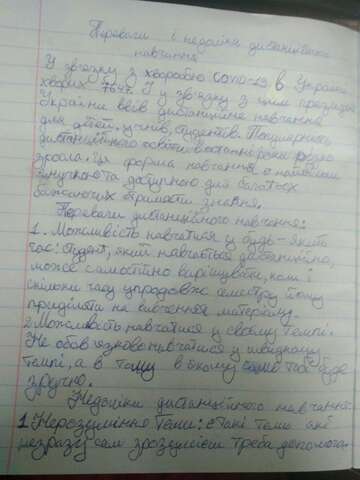 Переваги і недоліки дистанційного
навчання
У зв'язку з хворобою COVID-19 в Україні
хворих 7647. І у зв'язку з цим президент
України ввів дистанційне навчання
для дітей, учнів, студентів. Популярність
дистанційного освіти в останні роки різко
зросла. Ця форма навчання є найбільш
гнучкою та доступною для багатьох
бажаючих отримати знання.
Переваги дистанційного навчання:
1. Можливість навчатися у будь-який
час: студент, який навчається дистанційно,
може самостійно вирішувати, коли і
скільки часу упродовж семестру йому
приділяти на вивчення матеріалу.
2. Можливість навчатися у своєму темпі.
Не обов'язково навчатися у швидкому
темпі, а в тому в якому саме тобі буде
зручно.
Недоліки дистанційного навчання
1. Нерозуміння теми: є такі теми які
незразу сам зрозумієш треба допомога